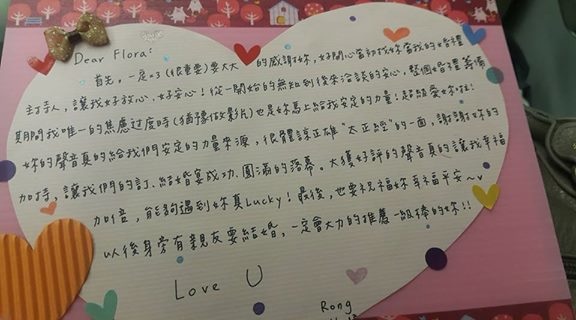 Dear Flora:
首先,一定<3(很重要)要大大的感謝妳,好開心當初找妳當我的婚禮
主持人,讓我好放心、好安心!從一開始的無知到後來洽談的安心,整個婚禮籌備
期間我唯一的焦慮過度時(猶豫做影片)也是妳馬上給我安定的力量!超級愛妳啦!
妳的聲音真的給我們安定的力量來源,很體諒正雄"太正經"的一面,謝謝妳的
加持,讓我們的訂、結婚宴成功、圓滿的落幕。大獲好評的聲音真的讓我幸福
加倍,能夠遇到妳真Lucky!最後,也要祝福妳幸福平安~v
以後身旁有親友要結婚,一定會大力的推薦一級棒的妳!!
Love U
Rong